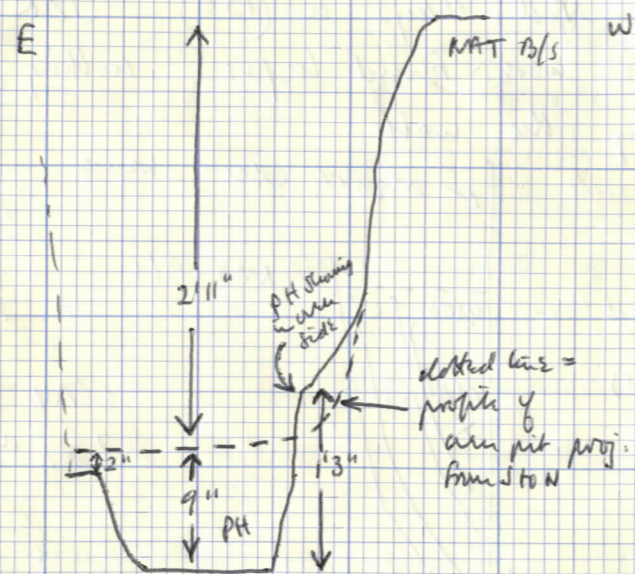 E
W
NAT B/S
2'11"
PH showing
in own
side
dotted line =
profile of
own pit proj.
from S to N
2"
1'3"
9"
PH